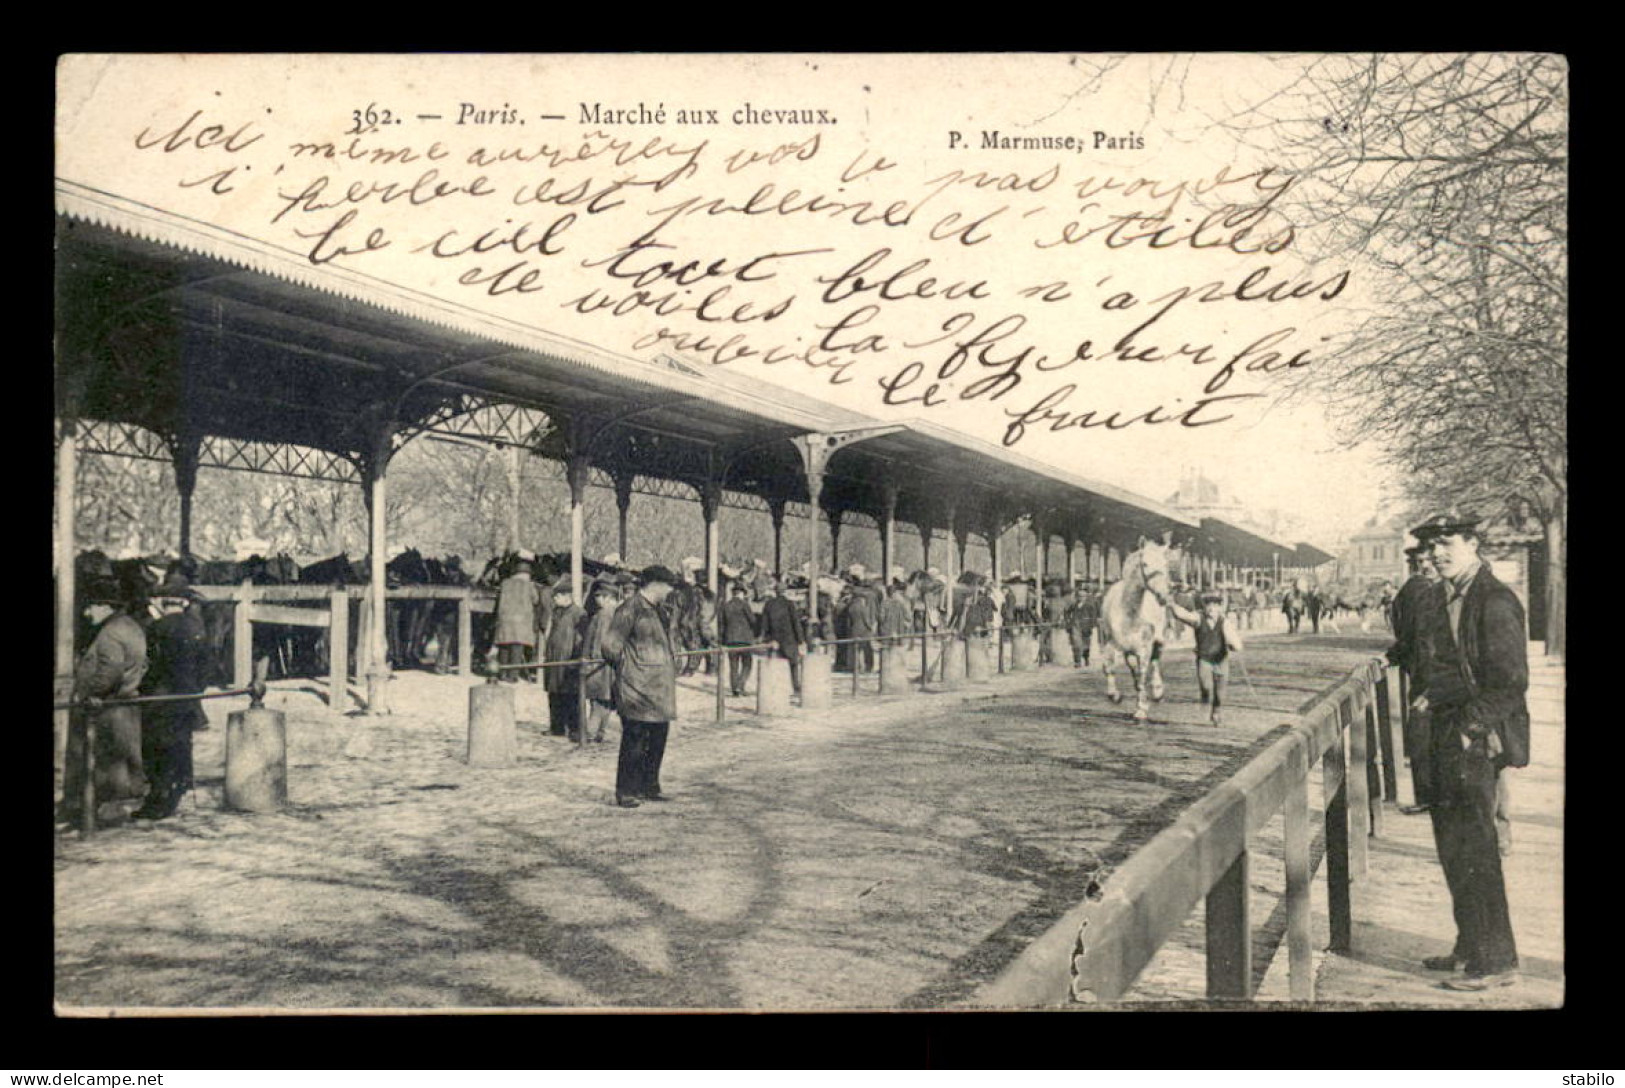 362. — Paris. — Marché aux chevaux.
P. Marmuse, Paris
Ici même auprès vos v pas voyez
l'herbe est pleine d'étoiles
Le ciel tout bleu n'a plus
de voiles la fait
oublier le fruit
delcampe.net
stabilo